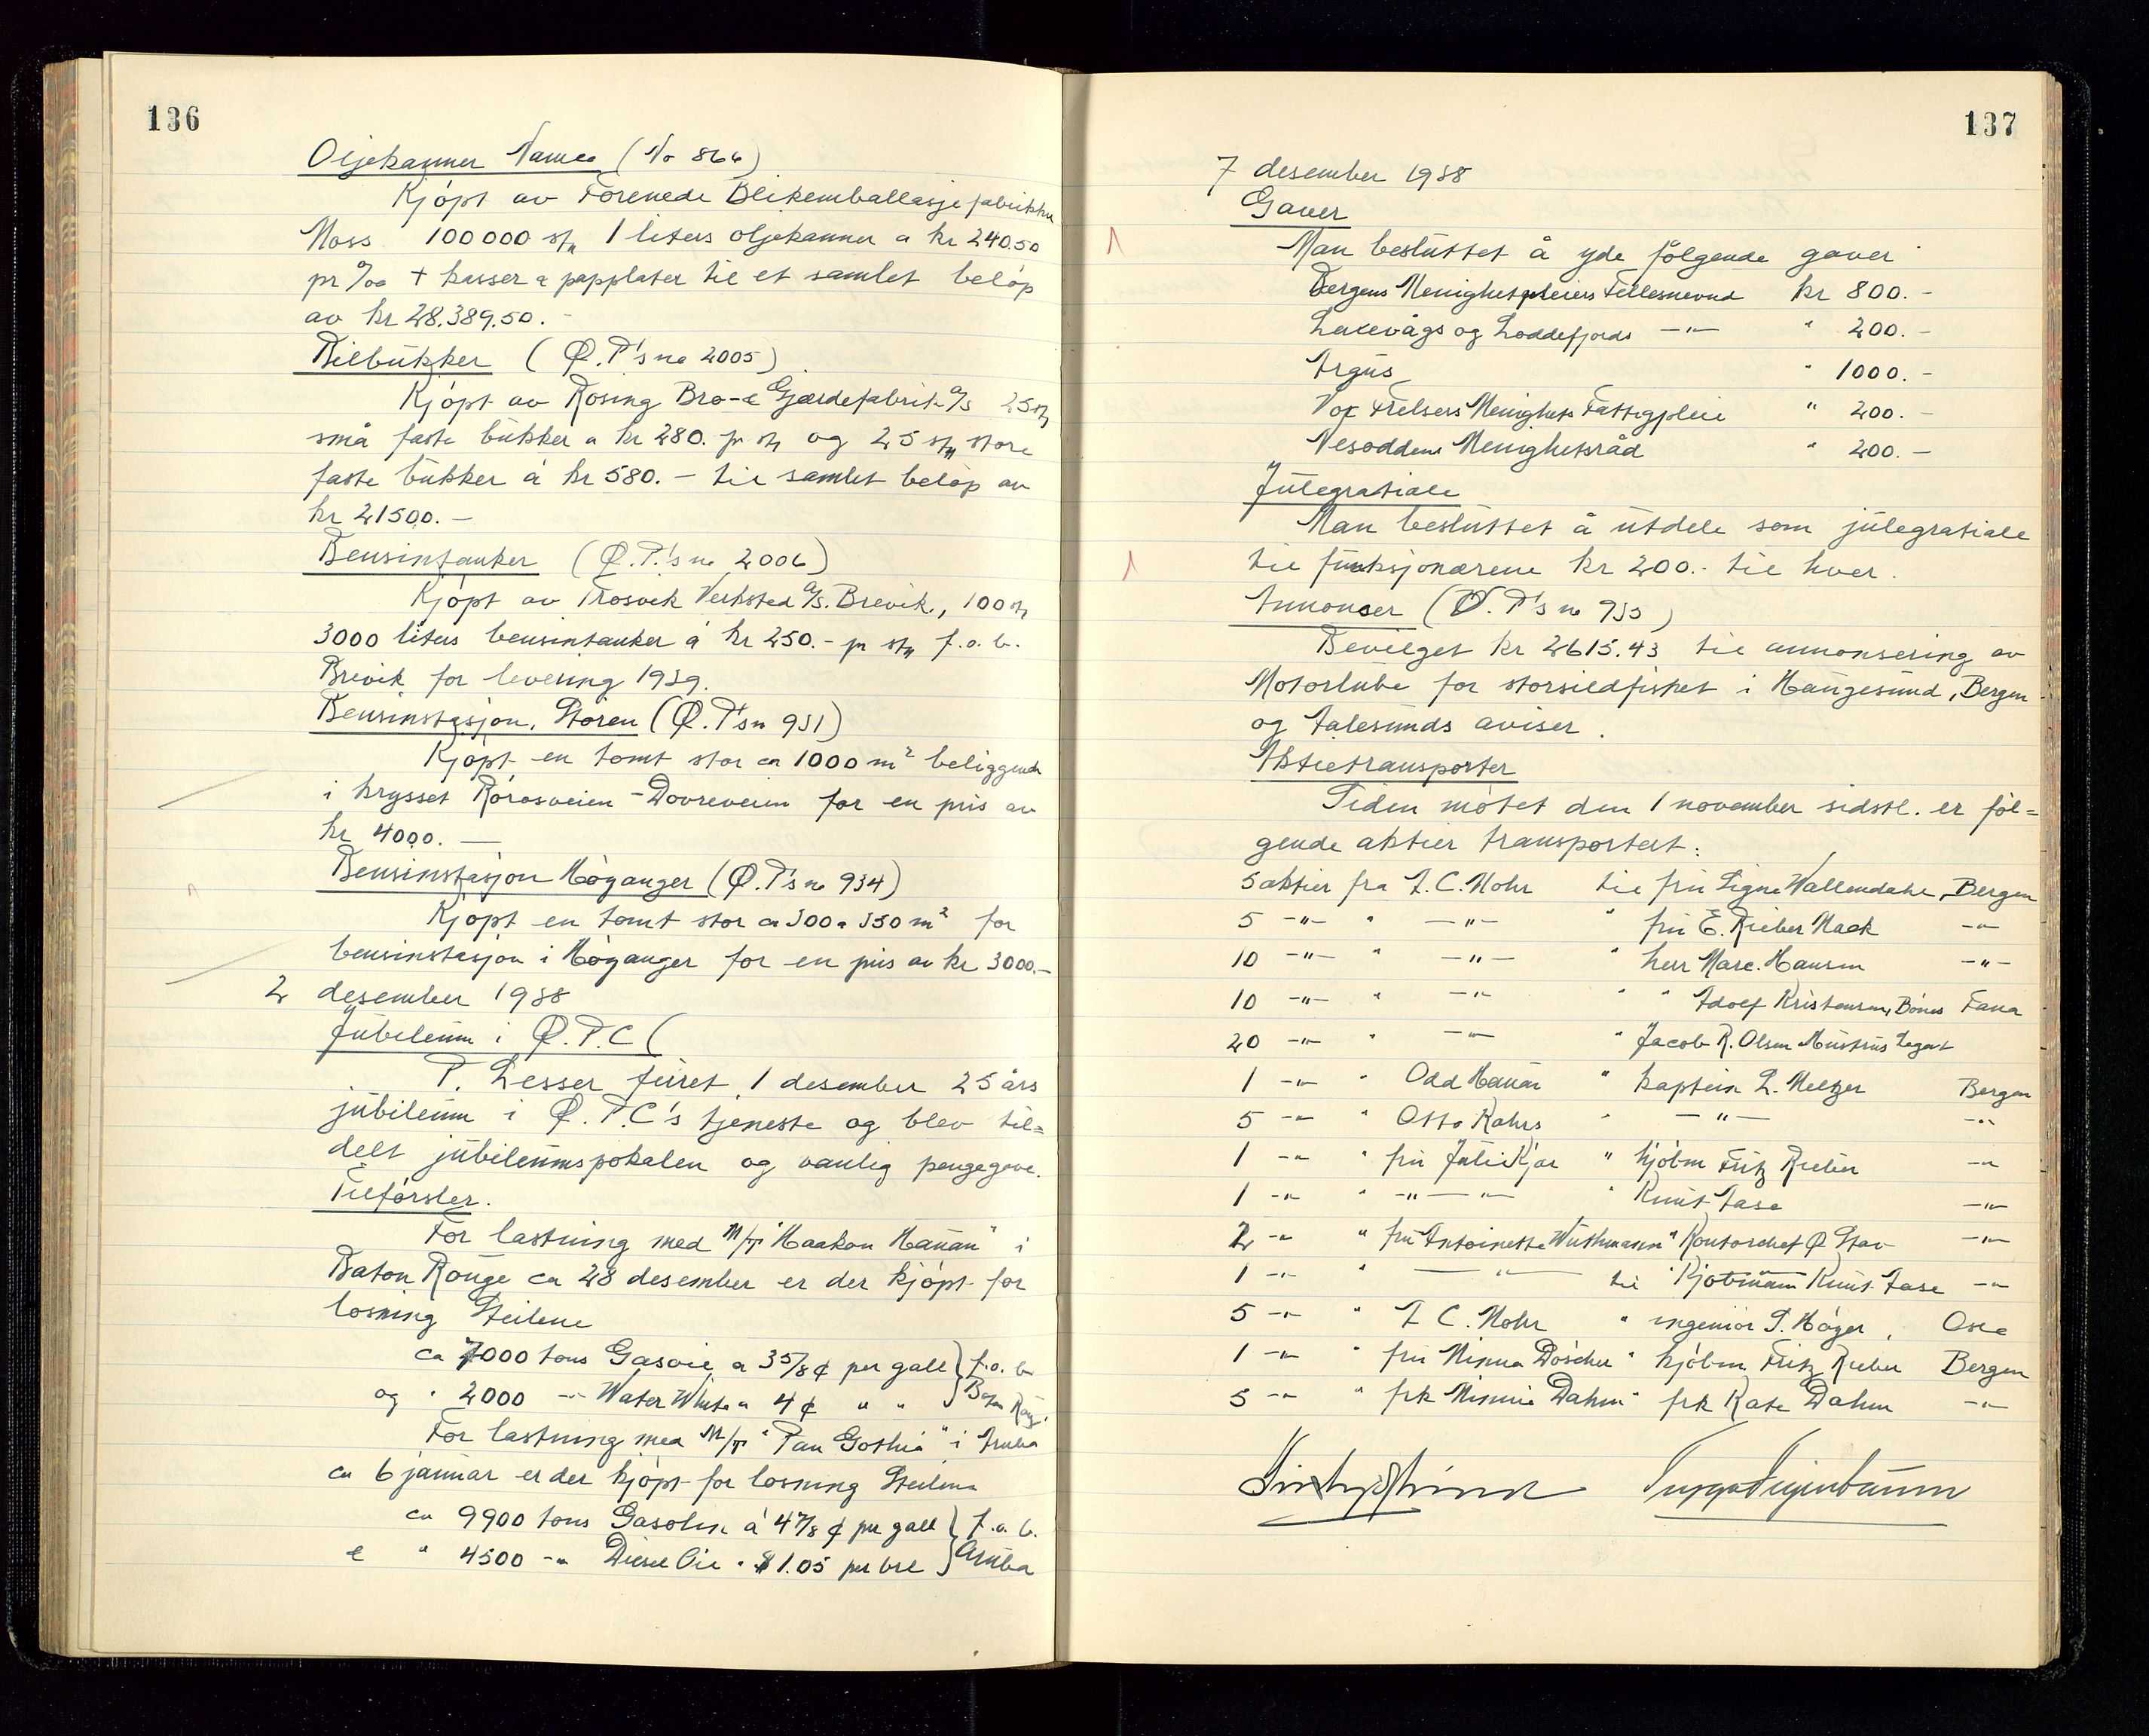 136
Oljekanner Vamco (No 866)
Kjöpt av Forenede Blikemballasje fabrikker
Moss 100000 st, 1 liters oljekanner a kr 240.50
pr ‰ + kasser & papplater til et samlet belöp
av kr 28.389.50.-
Bilbukker (Ø.P's no 2005)
Kjöpt av Rosing Bro- & Gjærdefabrik A/S 25 st,
små faste bukker a kr 280. pr st, og 25 st, store
faste bukker á kr 580.- til samlet belöp av
kr 21500.-
Bensintanker (Ø.P.'s no 2006)
Kjöpt av Trosvik Verksted A/S. Brevik, 100 st,
3000 liters bensintanker á kr 250.- pr st, f.o.b.
Brevik for levering 1939.
Bensinstasjon, Stören (Ø.P'sn 931)
Kjöpt en tomt stor ca 1000 m² beliggende
i krysset Rörosveien - Dovreveien for en pris av
kr 4000.-
Bensinstasjon Höyanger (Ø.P's no 934)
Kjöpt en tomt stor ca 300 a 350 m² for
bensinstasjon i Höyanger for en pris av kr 3000.-
2 desember 1938
Jubileum i Ø.P.C (
P. Lesser feiret 1 desember 25 års
jubileum i Ø.P.C's tjeneste og blev til=
delt jubileumspokalen og vanlig pengegave.
Tilförsler.
For lastning med M/T "Haakon Hauan" i
Baton Rouge ca 28 desember er der kjöpt for
losning Steilene
ca 7000 tons Gasoil a 3 5/8 ¢ per gall } f.o.b
og " 2000 -"- Water White a 4 ¢ " " } Baton Roug.
For lastning med M/T "Pan Gothia" i Aruba
ca 6 januar er der kjöpt for losning Steilene
ca 9900 tons Gasolin á 4 7/8 ¢ per gall } f.o.b.
& " 4500 -"- Diesel Oil " $ 1.05 per brl } Aruba
137
7 desember 1938
Gaver
Man besluttet å yde fölgende gaver
Bergens Menighetspleiers Fellesnevnd kr 800.-
Laxevågs og Loddefjords -"- " 200.-
Argus " 1000.-
Vor Frelsers Menighets Fattigpleie " 200.-
Nesoddens Menighetsråd " 200.-
Julegratiale
Man besluttet å utdele som julegratiale
til funksjonærene kr 200.- til hver.
Annonser (Ø.P's no 935)
Bevilget kr 2615.43 til annonsering av
Motorlube for storsildfisket i Haugesund, Bergen
og Aalesunds aviser.
Aktietransporter
Siden mötet den 1 november sidstl. er föl=
gende aktier transportert:
5 aktier fra A.C. Mohr til fru Signe Wallendahl, Bergen
5 -"- " -"- " fru E. Rieber Mack -"-
10 -"- " -"- " herr Marc. Hansen -"-
10 -"- " -"- " " Adolf Kristensen, Bönes Fana
20 -"- " -"- " Jacob R. Olsen & Hustrus Legat
1 -"- " Odd Hauan " kaptein L. Meltzer Bergen
5 -"- " Otto Kahrs " -"- -"-
1 -"- " fru Julie Kjær " kjöbm Fritz Rieber -"-
1 -"- " -"- -"- " Knut Aase -"-
2 -"- " fru Antoinette Wüthmann " Kontorchef O Stav -"-
1 -"- " -"- til " Kjöbmann Knut Aase -"-
5 -"- " A C. Mohr " ingeniör S. Höyer, Oslo
1 -"- " fru Minna Döscher " kjöbm Fritz Rieber Bergen
5 -"- " frk Minnie Dahm " frk Kate Dahm -"-